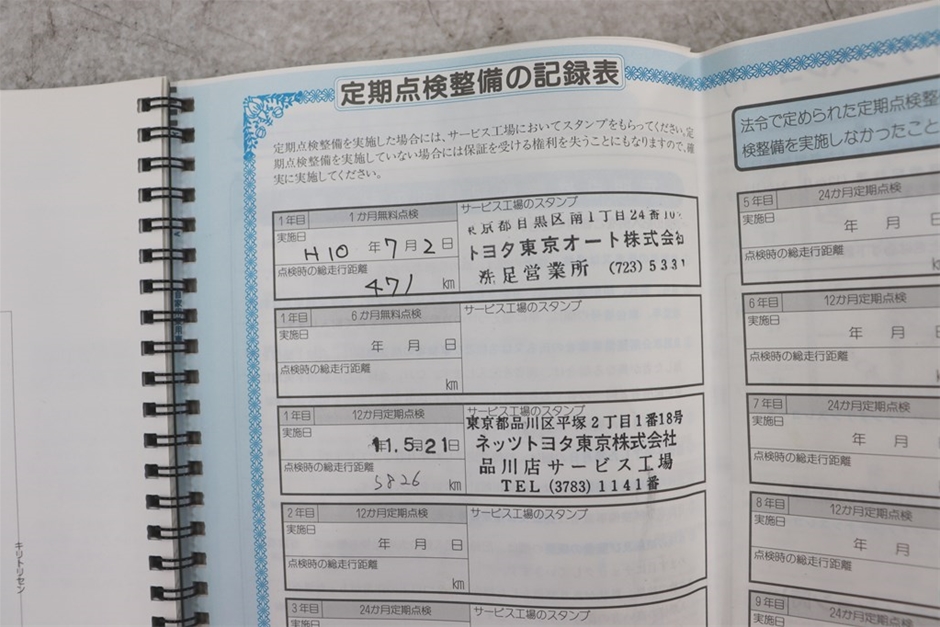 定期点検整備の記録表
定期点検整備を実施した場合には、サービス工場においてスタンプをもらってください。定
期点検整備を実施していない場合には保証を受ける権利を失うことにもなりますので、確
実に実施してください。
1年目 1か月無料点検
サービス工場のスタンプ
実施日
H10年7月2日
点検時の総走行距離
471 km
東京都目黒区南1丁目24番10
トヨタ東京オート株式会社
洗足営業所 (723)5331
1年目 6か月無料点検
サービス工場のスタンプ
実施日
年 月 日
点検時の総走行距離
km
1年目 12か月定期点検
サービス工場のスタンプ
実施日
11.5.21日
点検時の総走行距離
5826 km
東京都品川区平塚2丁目1番18号
ネッツトヨタ東京株式会社
品川店サービス工場
TEL (3783)1141番
2年目 12か月定期点検
サービス工場のスタンプ
実施日
年 月 日
点検時の総走行距離
km
3年目 24か月定期点検
サービス工場のスタンプ
実施日
法令で定められた定期点検整
検整備を実施しなかったこと
5年目 24か月定期点検
実施日
年 月
点検時の総走行距離
6年目 12か月定期点検
実施日
年 月
点検時の総走行距離
7年目 24か月定期点検
実施日
年 月
点検時の総走行距離
8年目 12か月定期点検
実施日
年 月
点検時の総走行距離
9年目 24か月定期点検
実施日
キリトリセン